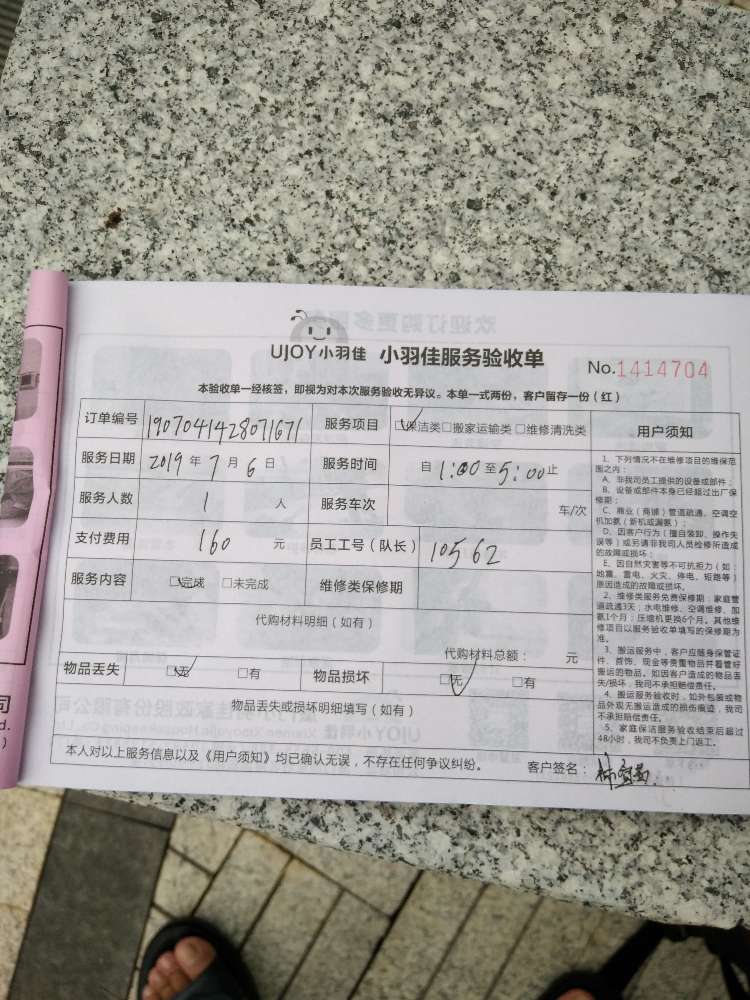 UJOY小羽佳 小羽佳服务验收单 No.1414704
本验收单一经核签，即视为对本次服务验收无异议。本单一式两份，客户留存一份（红）
订单编号 1907041428071671 服务项目 □保洁类□搬家运输类□维修清洗类
服务日期 2019年7月6日 服务时间 自1:00至5:00止
服务人数 1 人 服务车次 车/次
支付费用 160 元 员工工号（队长） 10562
服务内容 □完成 □未完成 维修类保修期
代购材料明细（如有）
代购材料总额： 元
物品丢失 □无 □有 物品损坏 □无 □有
物品丢失或损坏明细填写（如有）
本人对以上服务信息以及《用户须知》均已确认无误，不存在任何争议纠纷。 客户签名：
用户须知
1、下列情况不在维修项目的维保范
围之内：
A、非我司员工提供的设备或部件；
B、设备或部件本身已经超过出厂保
修期；
C、商业（商铺）管道疏通、空调空
机加氨（新机或漏氨）；
D、因客户行为（擅自装卸、操作失
误等）或另请非我司人员检修所造成
的故障或损坏；
E、因自然灾害等不可抗拒力（如：
地震、雷电、火灾、停电、短路等）
原因造成的故障或损坏。
2、维修类服务免费保修期：家庭管
道疏通3天；水电维修、空调维修、加
氨1个月；压缩机更换6个月。其他维
修项目以服务验收单填写的保修期为
准。
3、搬运服务中，客户应随身保管证
件、首饰、现金等贵重物品并看管好
搬运的物品。如因客户造成的物品丢
失/损坏，我司不承担赔偿责任。
4、搬运服务验收时，如外包装或物
品外观无搬运造成的损伤痕迹，我司
不承担赔偿责任。
5、家庭保洁服务验收结束后超过
48小时，我司不负责上门返工。
司
d.
)